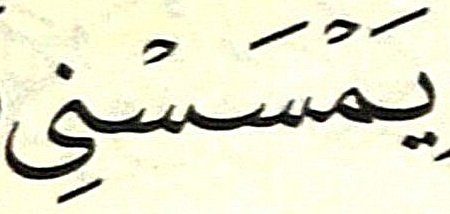 يَمْسَسْنِي